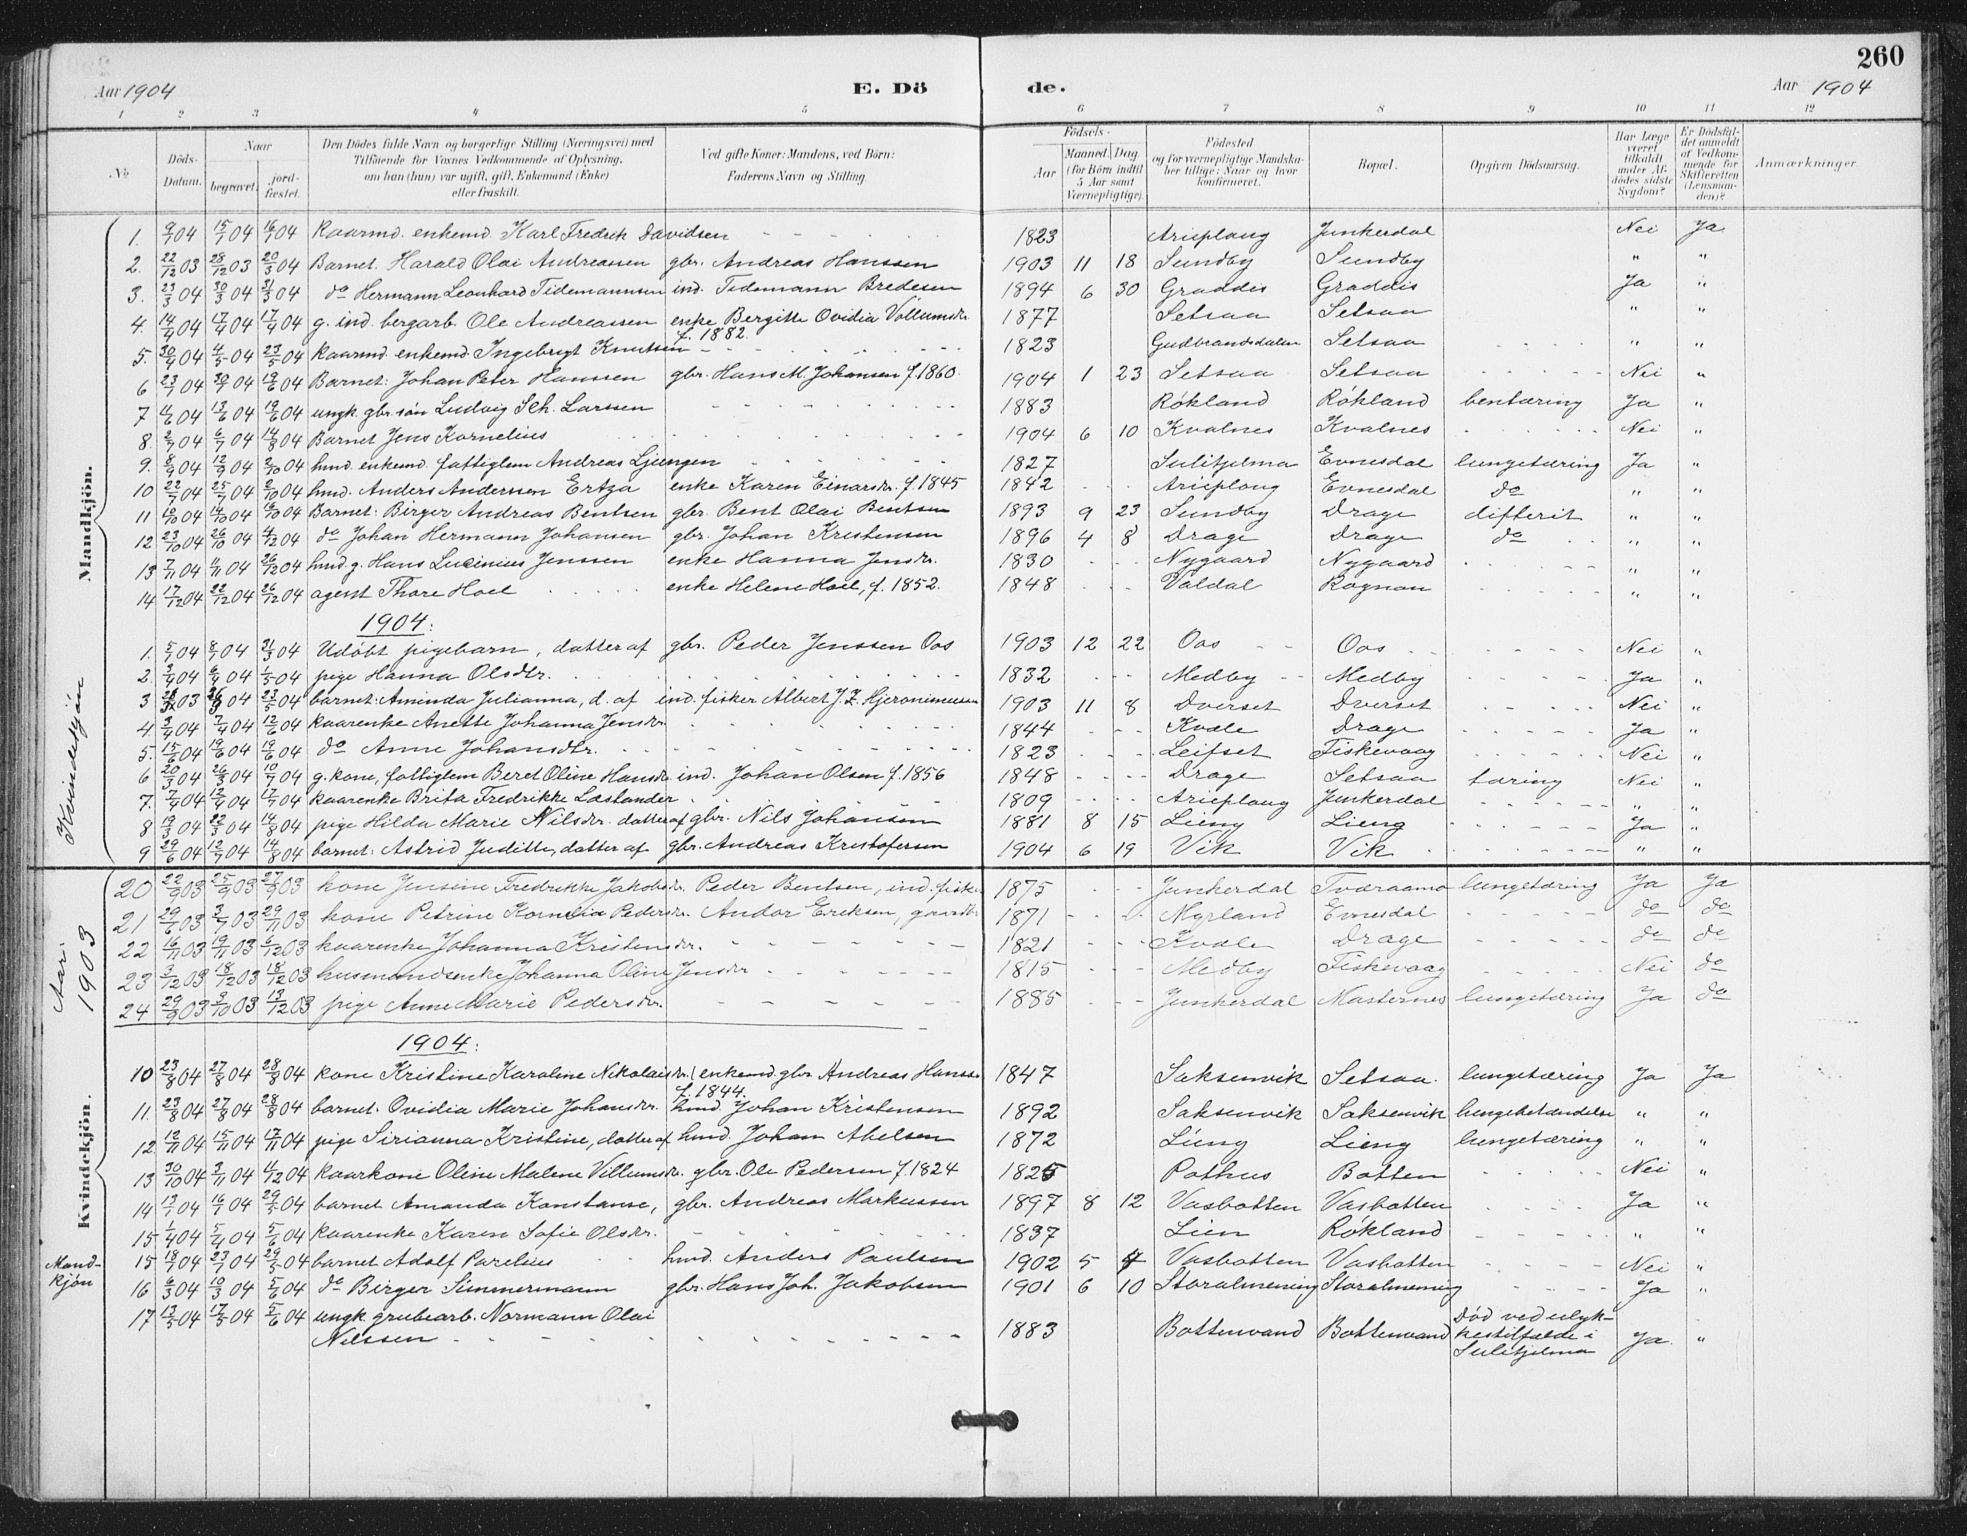 260
Aar 1904 E. Dö de. Aar 1904
1 2 3 4 5 6 7 8 9 10 11 12
No Döds-Datum. Naar begravet. jord-fæstet. Den Dödes fulde Navn og borgerlige Stilling (Næringsvei) med Tilföiende for Voxnes Vedkommende af Oplysning, om han (hun) var ugift, gift, Enkemand (Enke) eller fraskilt. Ved gifte Koner: Mandens, ved Börn: Faderens Navn og Stilling. Födsels- Aar Maaned. Dag. (for Börn indtil 5 Aar samt Værnepligtige). Födested og for værnepligtige Mandskaber tillige: Naar og hvor konfirmeret. Bopæl. Opgiven Dödsaarsag. Har Læge været tilkaldt under Afdödes sidste Sygdom? Er Dödsfaldet anmeldt af Vedkommende for Skifteretten (Lensmanden)? Anmærkninger.
Mandkjön.
1. 9/1 04 15/1 04 16/1 04 Kaarmd. enkemd. Karl Fredrik Davidsen - - - - 1823 Arieplaug Junkerdal Nei Ja
2. 22/12 03 28/12 03 20/3 04 Barnet. Harald Olai Andreassen gbr. Andreas Hanssen 1903 11 18 Sundby Sundby " "
3. 23/3 04 30/3 04 31/3 04 do Hermann Leonhard Tidemannsen ind. Tidemann Bredesen 1894 6 30 Graddis Graddis Ja "
4. 14/4 04 17/4 04 17/4 04 g. ind. bergarb. Ole Andreassen enke Bergitte Ovidia Vollumsdr. f. 1882. 1877 Setsaa Setsaa " "
5. 30/4 04 4/5 04 23/5 04 kaarmd. enkemd. Ingebrigt Knutsen - - 1823 Gudbrandsdalen Setsaa - - - " "
6 23/1 04 04 19/6 04 Barnet: Johan Peter Hanssen gbr. Hans M. Johansen f. 1860. 1904 1 23 Setsaa Setsaa - - - Nei "
7 04 13/6 04 19/6 04 ungk. gbr. søn Ludvig Sch. Larssen - - - 1883 Røkland Røkland bentæring Ja "
8. 2/7 04 6/7 04 14/8 04 Barnet Jens Kornelius - - - 1904 6 10 Kvalnes Kvalnes - - - Nei "
9. 8/9 04 12/9 04 2/10 04 hmd. enkemd. fattiglem Andreas Ljungen - - - 1827 Sulitjelma Evnesdal lungetæring Ja "
10 22/7 04 25/7 04 2/10 04 hmd. Anders Anderssen Ertza enke Karen Einarsdr. f. 1845 1842 - - - Arieplaug Evnesdal do " "
11 10/10 04 14/10 04 16/10 04 Barnet: Birger Andreas Bentsen gbr. Bent Olai Bentsen 1893 9 23 Sundby Drage difterit " "
12 23/10 04 26/10 04 4/12 04 do Johan Hermann Johansen gbr. Johan Kristensen 1896 4 8 Drage Drage do " "
13 7/11 04 04 26/12 04 hmd. g. Hans Lucinius Jenssen enke Hanna Jensdr. 1830 - - - Nygaard Nygaard - - - " "
14 17/12 04 22/12 04 26/12 04 agent Thore Hoel - - - enke Helene Hoel, f. 1852. 1848 - - - Valdal Rognan - - - " "
1904:
Kvindekjön
1. 5/1 04 8/1 04 31/3 04 Udøbt pigebarn, datter af gbr. Peder Jenssen Oos 1903 12 22 Oos - - Oos - - - Nei "
2. 3/4 04 6/4 04 1/5 04 pige Hanna Olsdtr. - - - 1832 - - - Medby - - Medby - - - Ja "
3 03 04 23/5 04 barnet: Aminda Julianna, d. af ind. fisker Albert J. Z. Hjeronimussen 1903 11 8 Dverset Dverset - - - Nei "
4 3/4 04 7/4 04 12/6 04 kaarenke Anette Johanna Jensdr. - - - 1844 - - - Kvæle Drage - - - Ja "
5. 15/6 04 19/6 04 19/6 04 do Anne Johansdtr. - - - 1823 - - - Leifset Fiskevaag - - - Nei "
6 20/3 04 26/3 04 10/7 04 g. kone, fattiglem Beret Oline Hansdr. ind. Johan Olsen f. 1856 1848 - - - Drage Setsaa tæring Nei "
7. 7/4 04 12/4 04 17/7 04 kaarenke Brita Fredrikke Læstander - - - 1809 - - - Arieplaug Junkerdal - - - " "
8 19/3 04 22/3 04 14/8 04 pige Hilda Marie Nilsdr. datter af gbr. Nils Johansen 1881 8 15 Lieng Lieng - - - Ja "
9 29/6 04 12/7 04 14/8 04 barnet: Astrid Juditte, datter af gbr. Andreas Kristofersen 1904 6 19 Vik Vik - - - " "
Aar: 1903
20 22/9 03 25/9 03 27/9 03 kone Jensine Fredrikke Jakobsdr. Peder Bentsen, ind. fisker 1875 - - - Junkerdal Tværaamo lungetæring Ja Ja
21 29/6 03 3/7 03 29/11 03 kone Petrine Kornelia Pedersdr. Andor Eriksen, gaardbr. 1871 - - - Myrland Evnesdal - - - do do
22 16/11 03 19/11 03 6/12 03 kaarenke Johanna Kristensdr. - - - 1821 - - - Kvæle Drage - - - do do
23 3/12 03 18/12 03 18/12 03 husmandsenke Johanna Oline Jensdr. - - - 1815 - - - Medby Fiskevaag Nei do
24 29/9 03 3/10 03 13/12 03 pige Anne Marie Pedersdr. - - - 1885 - - - Junkerdal Masternes lungetæring Ja do
1904:
Kvindekjön.
10 23/8 04 27/8 04 28/8 04 kone Kristine Karoline Nikolaisdr. (enkemd. gbr. Andreas Hanss. f. 1844. 1847 Saksenvik Setsaa. lungetæring Ja Ja
11. 23/8 04 27/8 04 28/8 04 barnet: Ovidia Marie Johansdr. hmd. Johan Kristensen 1892 Saksenvik Saksenvik lungebetændelse " "
12 12/11 04 15/11 04 17/11 04 pige Sirianna Kristine, datter af hmd. Johan Abelsen 1872 Lieng Lieng lungetæring " "
13 30/10 04 3/11 04 4/12 04 kaarkone Oline Malene Villumsdr. gbr. Ole Pedersen f. 1824 1825 Pothus Botten - - - Nei "
14 13/1 04 16/1 04 29/5 04 barnet Amanda Konstanse, gbr. Andreas Markussen 1897 8 12 Vasbotten Vasbotten - - - Ja "
15 1/4 04 5/4 04 5/6 04 kaarenke Karen Sofie Olsdr. - - - 1837 Lien Røkland - - - " "
Mandkjön
15 18/1 04 23/1 04 29/5 04 barnet Adolf Parelius - - hmd. Anders Paulsen 1902 5 Vasbotten Vasbotten - - - Nei "
16 6/3 04 10/3 04 5/6 04 do Birger Simmermann gbr. Hans Joh. Jakobsen 1901 6 10 Storalmening Storalmening - - Ja "
17 13/5 04 17/5 04 5/6 04 ungk. grubearb. Normann Olai Nilssen - - - 1883 Bottenvand Bottenvand Død ved ulykkestilfælde i Sulitjelma Ja. "